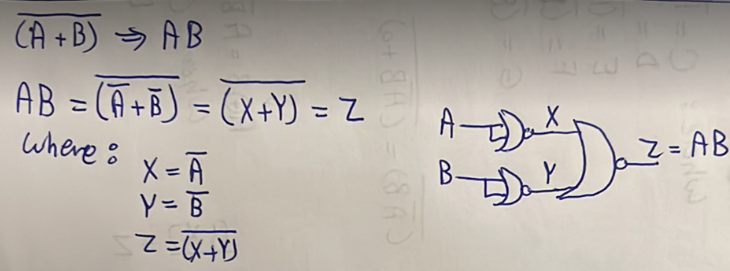 \overline{(A+B)} ⇒ AB
AB = \overline{(\overline{A}+\overline{B})} = \overline{(X+Y)} = Z
Where:
X = \overline{A}
Y = \overline{B}
Z = \overline{(X+Y)}
A X
B Y
Z = AB